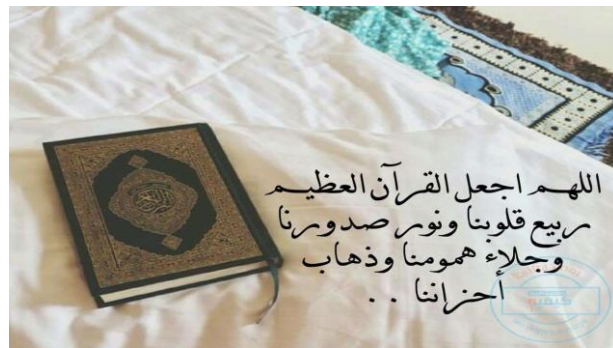 اللهم اجعل القرآن العظيم
ربيع قلوبنا ونور صدورنا
وجلاء همومنا وذهاب
أحزاننا . .